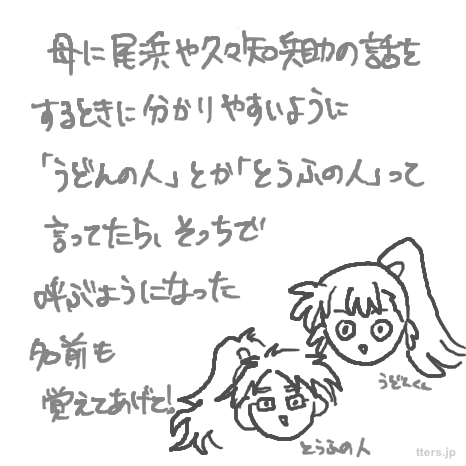 母に尾浜や久々知兵助の話を
するときに分かりやすいように
「うどんの人」とか「とうふの人」って
言ってたら、そっちで
呼ぶようになった
名前も
覚えてあげて!
うどんくん
とうふの人
tters.jp